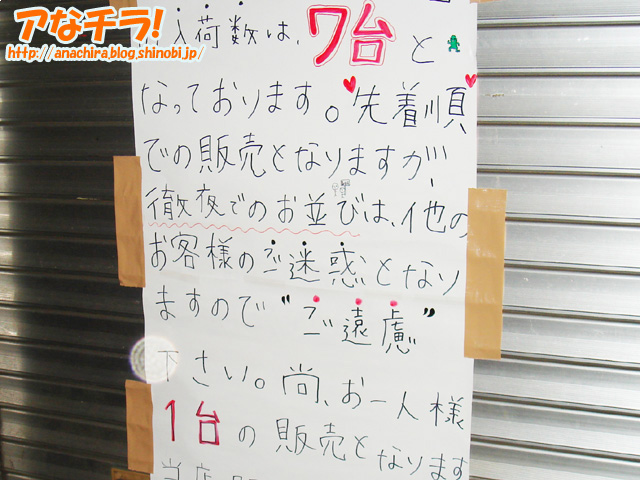 アなチラ!
http://anachira.blog.shinobi.jp/
入荷数は、7台と
なっております。先着順
での販売となりますが、
徹夜でのお並びは、他の
お客様のご迷惑となり
ますので"ご遠慮"
下さい。尚、お一人様
1台の販売となります
当店